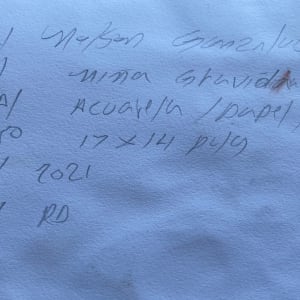 / Nelson Gonzalez
/ Niña Gravida
A/ Acuarela / papel
ño 17 x 14 pulg
/ 2021
/ RD